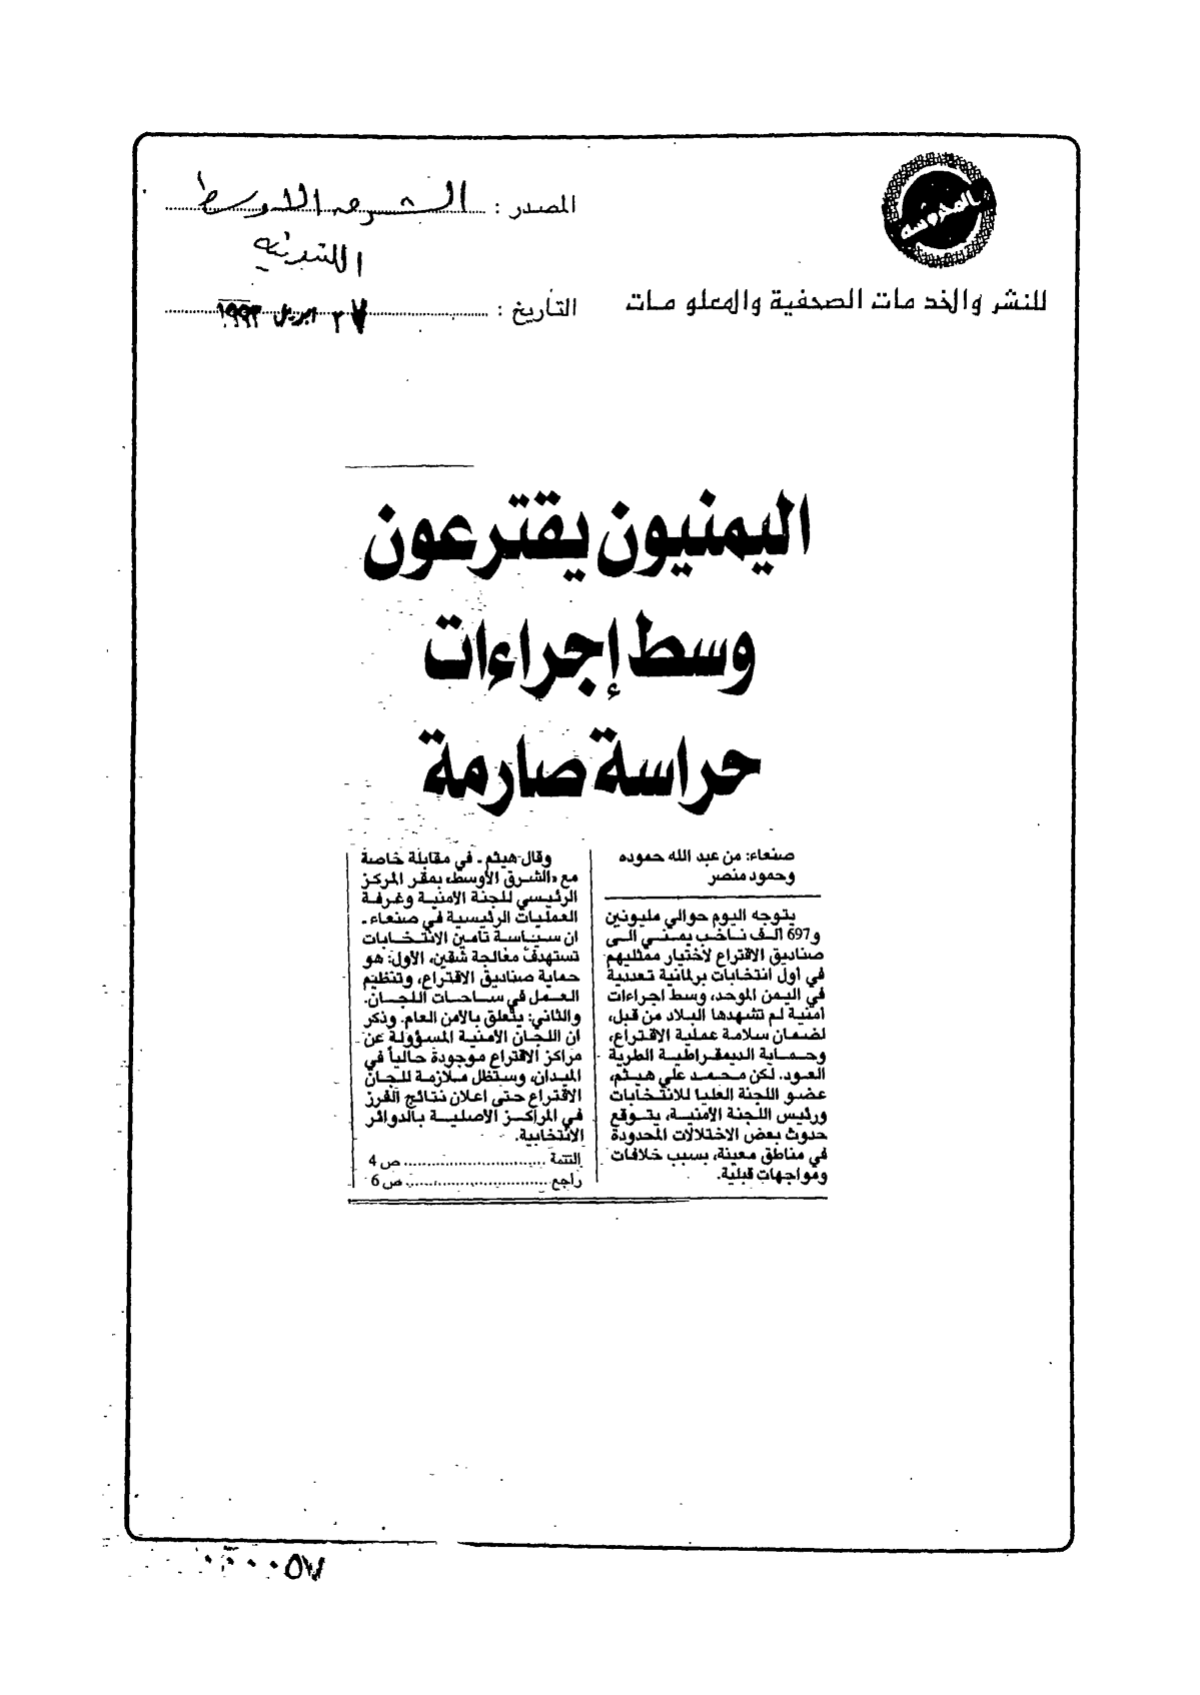 المحروسة
للنشر والخدمات الصحفية والمعلومات
المصدر : الشرق الاوسط
اللندنية
التأريخ : ٢٧ ابريل ١٩٩٣
اليمنيون يقترعون
وسط إجراءات
حراسة صارمة
صنعاء: من عبد الله حموده
وحمود منصر
يتوجه اليوم حوالي مليونين
و697 الف ناخب يمني الى
صناديق الاقتراع لأختيار ممثليهم
في اول انتخابات برلمانية تعددية
في اليمن الموحد، وسط اجراءات
أمنية لم تشهدها البلاد من قبل،
لضمان سلامة عملية الاقتراع،
وحماية الديمقراطية الطرية
العود. لكن محمد علي هيثم،
عضو اللجنة العليا للانتخابات
ورئيس اللجنة الأمنية، يتوقع
حدوث بعض الاختلالات المحدودة
في مناطق معينة، بسبب خلافات
ومواجهات قبلية.
وقال هيثم ـ في مقابلة خاصة
مع «الشرق الأوسط» بمقر المركز
الرئيسي للجنة الامنية وغرفة
العمليات الرئيسية في صنعاء ـ
ان سياسة تأمين الانتخابات
تستهدف معالجة شقين، الأول: هو
حماية صناديق الاقتراع، وتنظيم
العمل في ساحات اللجان.
والثاني: يتعلق بالأمن العام. وذكر
ان اللجان الأمنية المسؤولة عن
مراكز الاقتراع موجودة حالياً في
الميدان، وستظل ملازمة للجان
الاقتراع حتى اعلان نتائج الفرز
في المراكز الاصلية بالدوائر
الانتخابية.
التتمة ........................ ص 4
راجع ........................ ص 6